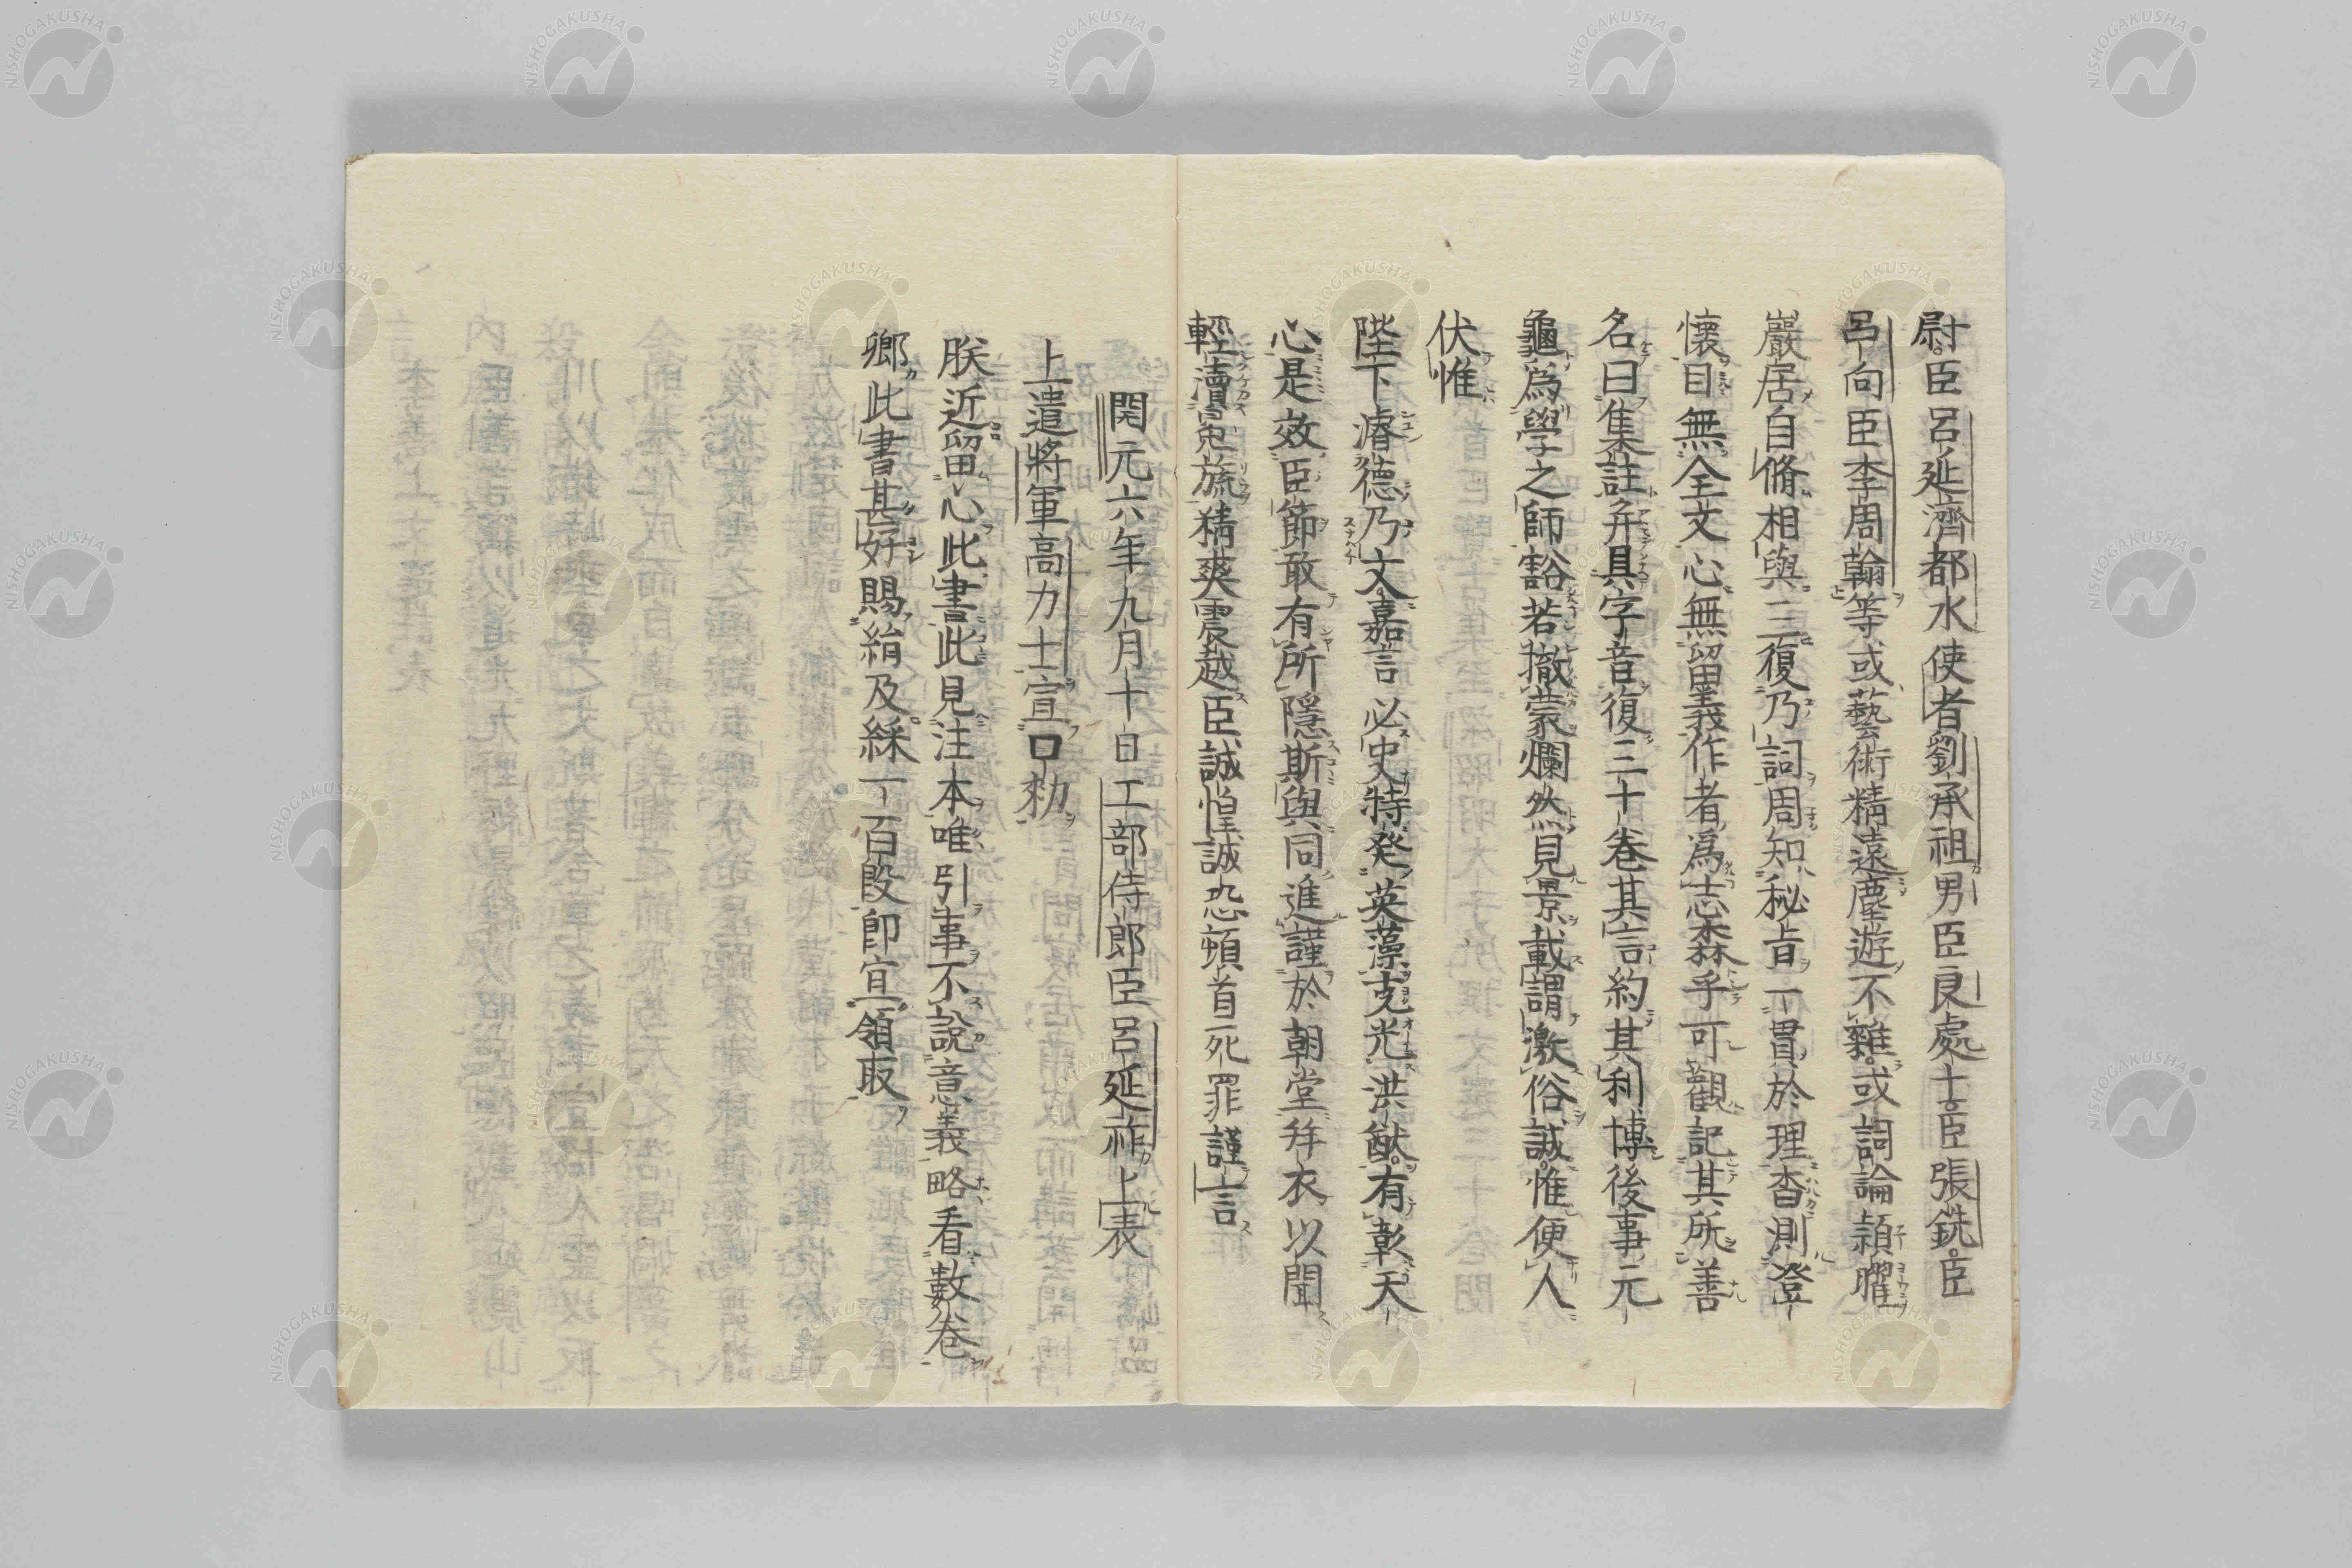 尉臣呂延濟都水使者劉承祖男臣良處士臣張銑臣
呂向臣李周翰等或藝術精遠塵遊不雜或詞論頴曜
巖居自脩相與三復乃詞周知秘旨一貫於理杳測澄
懷目無全文心無留義作者爲志森乎可觀記其所善
名曰集註并具字音復三十卷其言約其利博後事元
龜爲學之師豁若撤蒙爛然見景載謂激俗誠惟便人
伏惟
陛下濬德乃文嘉言必史特發英藻克光洪猷有彰天
心是效臣節敢有所隱斯與同進謹於朝堂拜衣以聞
輕瀆冕旒精爽震越臣誠惶誠恐頓首死罪謹言
開元六年九月十日工部侍郎臣呂延祚上表
上遣將軍高力士宣口勅
朕近留心此書此見注本唯引事不說意義略看數卷
卿此書甚好賜絹及綵一百段即宜領取
NISHOGAKUSHA